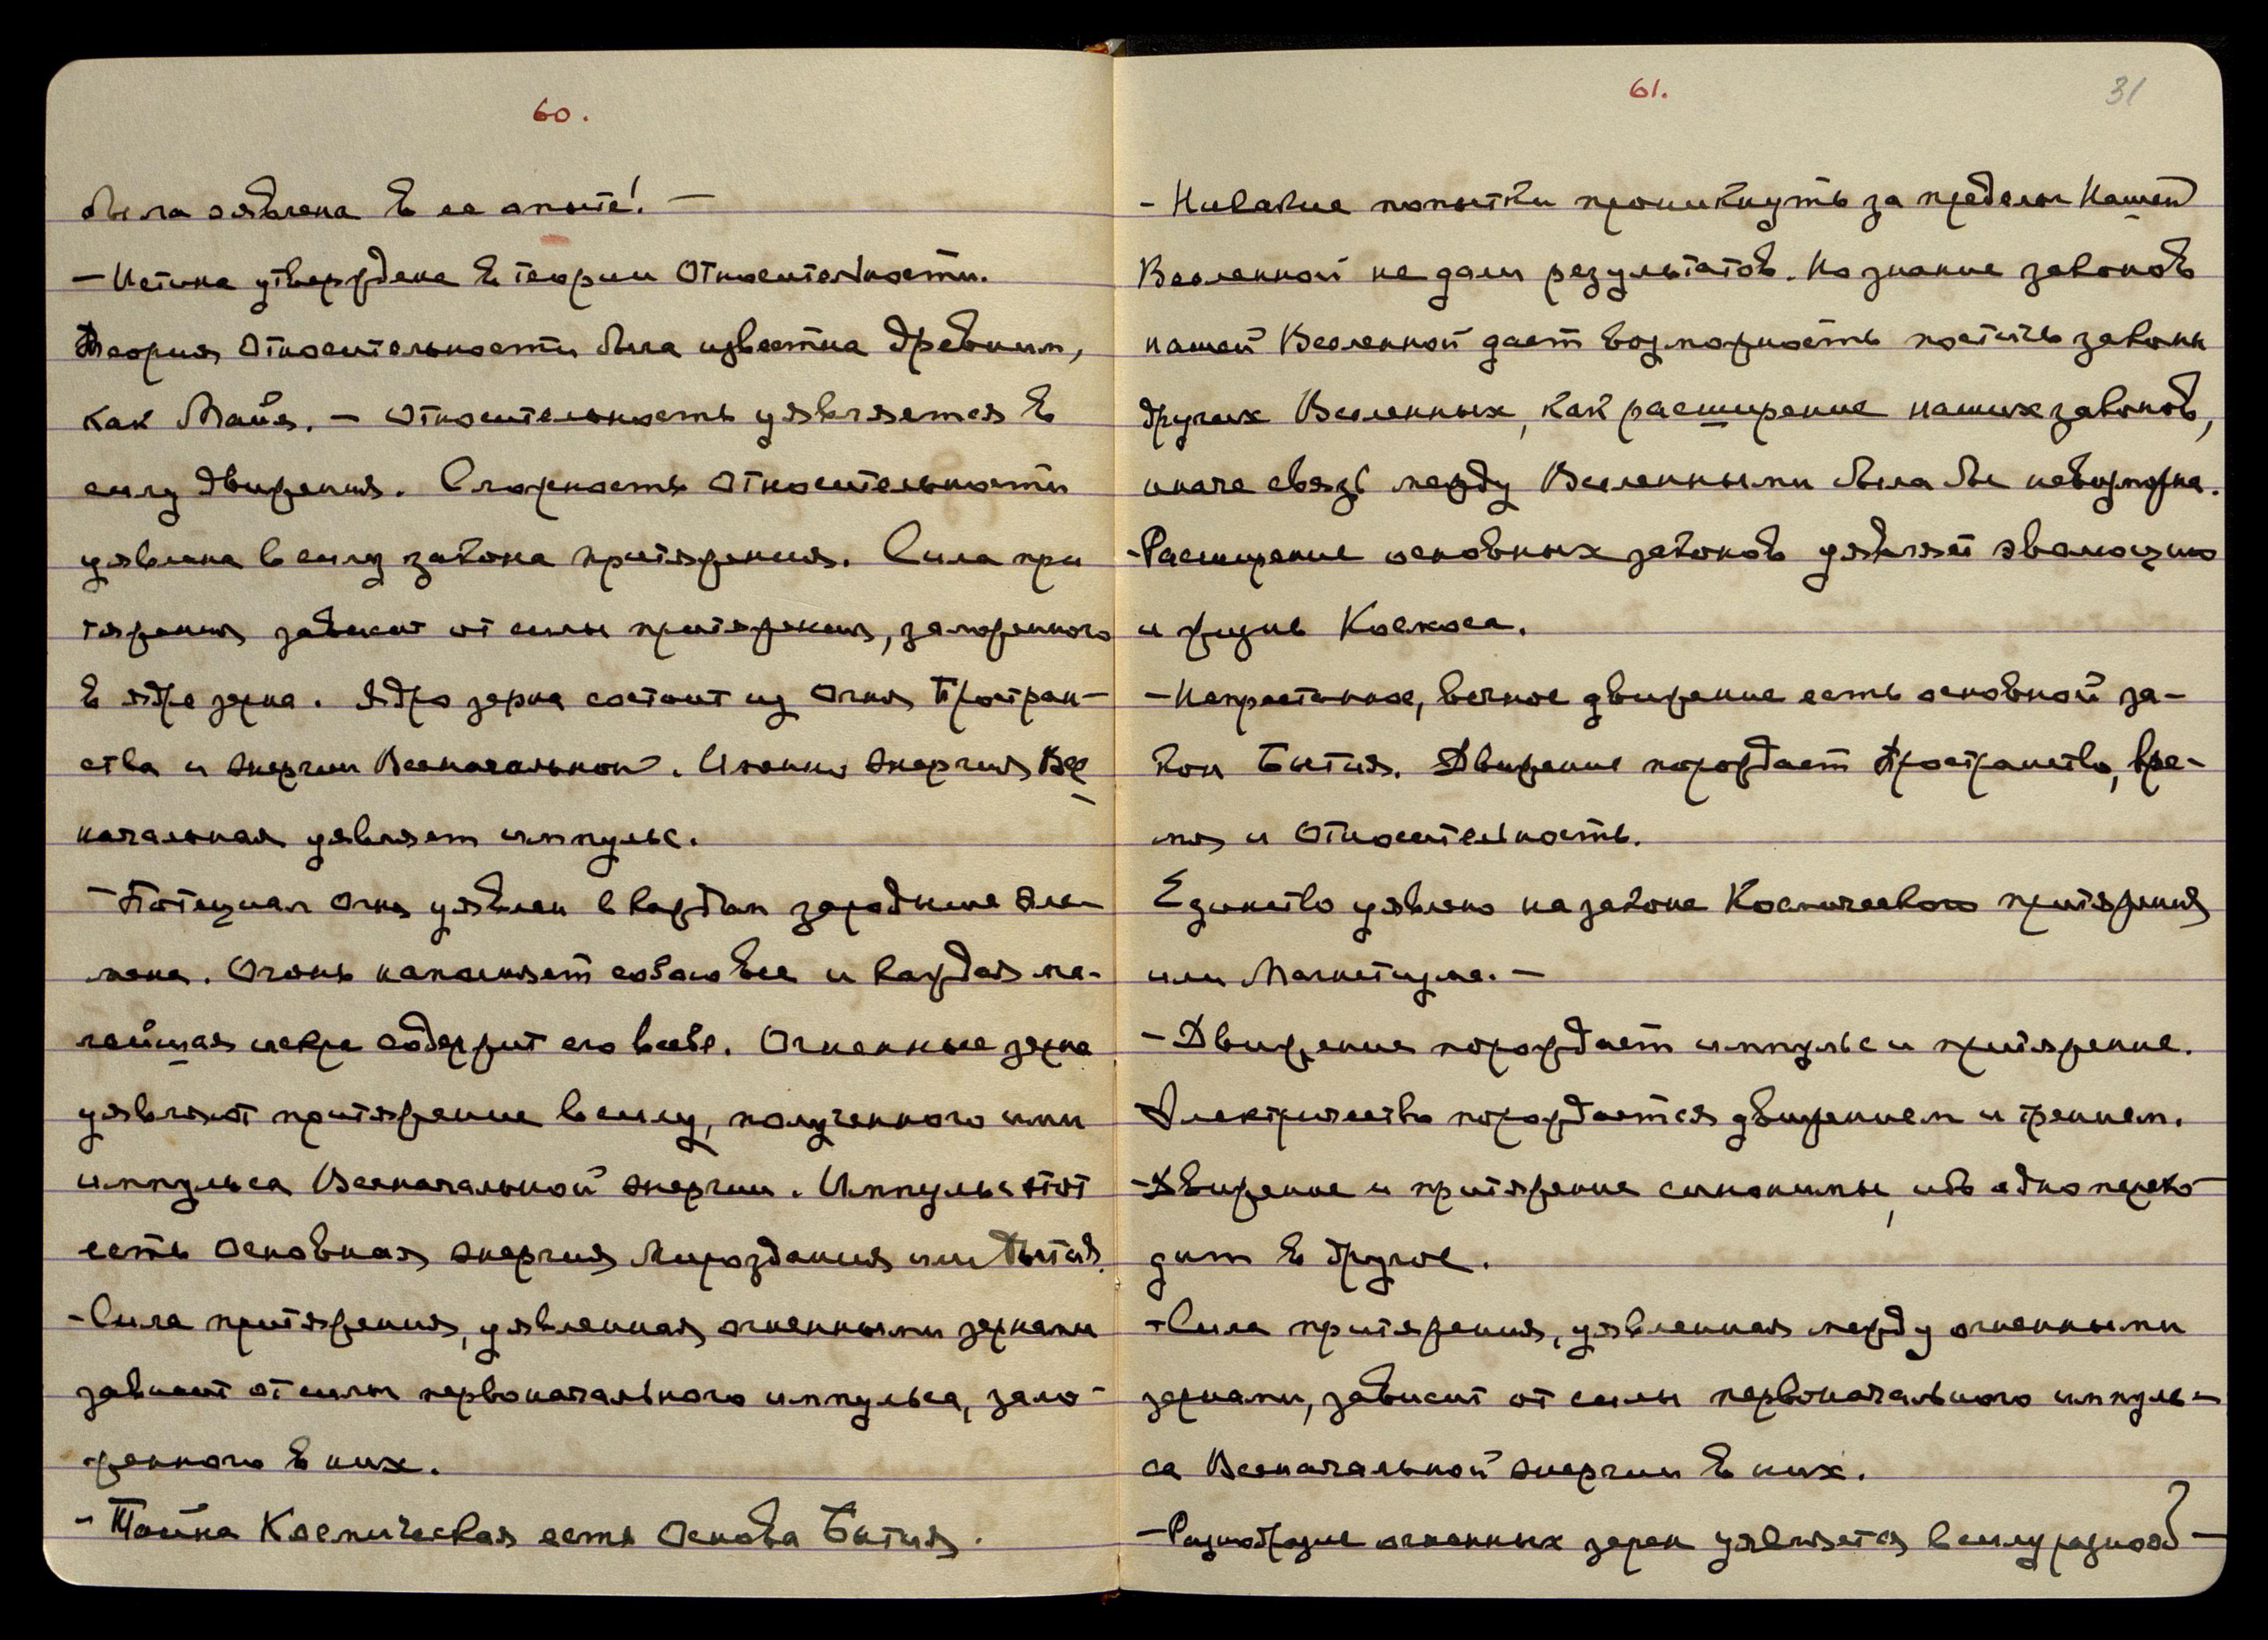 60.
была явлена в ее опыте! —
— Истина утверждена в теории Относительности.
Теория Относительности была известна древним,
как Майя. — Относительность уявляется в
силу движения. Сложность Относительности
уявлена в силу закона притяжения. Сила при
тяжения зависит от силы притяжения, заложенного
в ядре зерна. Ядро зерна состоит из Огня Простран-
ства и энергии Всеначальной. Именно энергия Все
начальная уявляет импульс.
— Потенциал Огня уявлен в каждом зародыше эле-
мена. Огонь наполняет собою все и каждая ма-
лейшая искра содержит его в себе. Огненные зерна
уявляют притяжение в силу, полученного ими
импульса Всеначальной энергии. Импульс этот
есть Основная энергия Мироздания или Бытия.
- Сила притяжения, уявленная огненными зернами
зависит от силы первоначального импульса, зало-
женного в них.
- Тайна Космическая есть Основа Бытия.
61.
31
- Никакие попытки проникнуть за пределы Нашей
Вселенной не дали результатов. Но знание законов
нашей Вселенной дает возможность постичь законы
других Вселенных, как расширение наших законов,
иначе связь между Вселенными была бы невозможна.
- Расширение основных законов уявляет эволюцию
и жизнь Космоса.
- Непрестанное, вечное движение есть основной за-
кон Бытия. Движение порождает Пространство, вре-
мя и Относительность.
Единство уявлено на законе Космического притяжения
или Магнетизма. —
- Движение порождает импульс и притяжение.
Электричество порождается движением и трением.
- Движение и притяжение синонимы, ибо одно перехо-
дит в другое.
- Сила притяжения, уявленная между огненными
зернами, зависит от силы первоначального импуль-
са Всеначальной энергии в них.
- Разнообразие огненных зерен уявляется в силу разнооб-